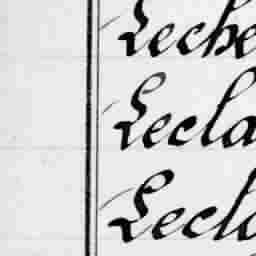 Leche
Lecla
Leclo